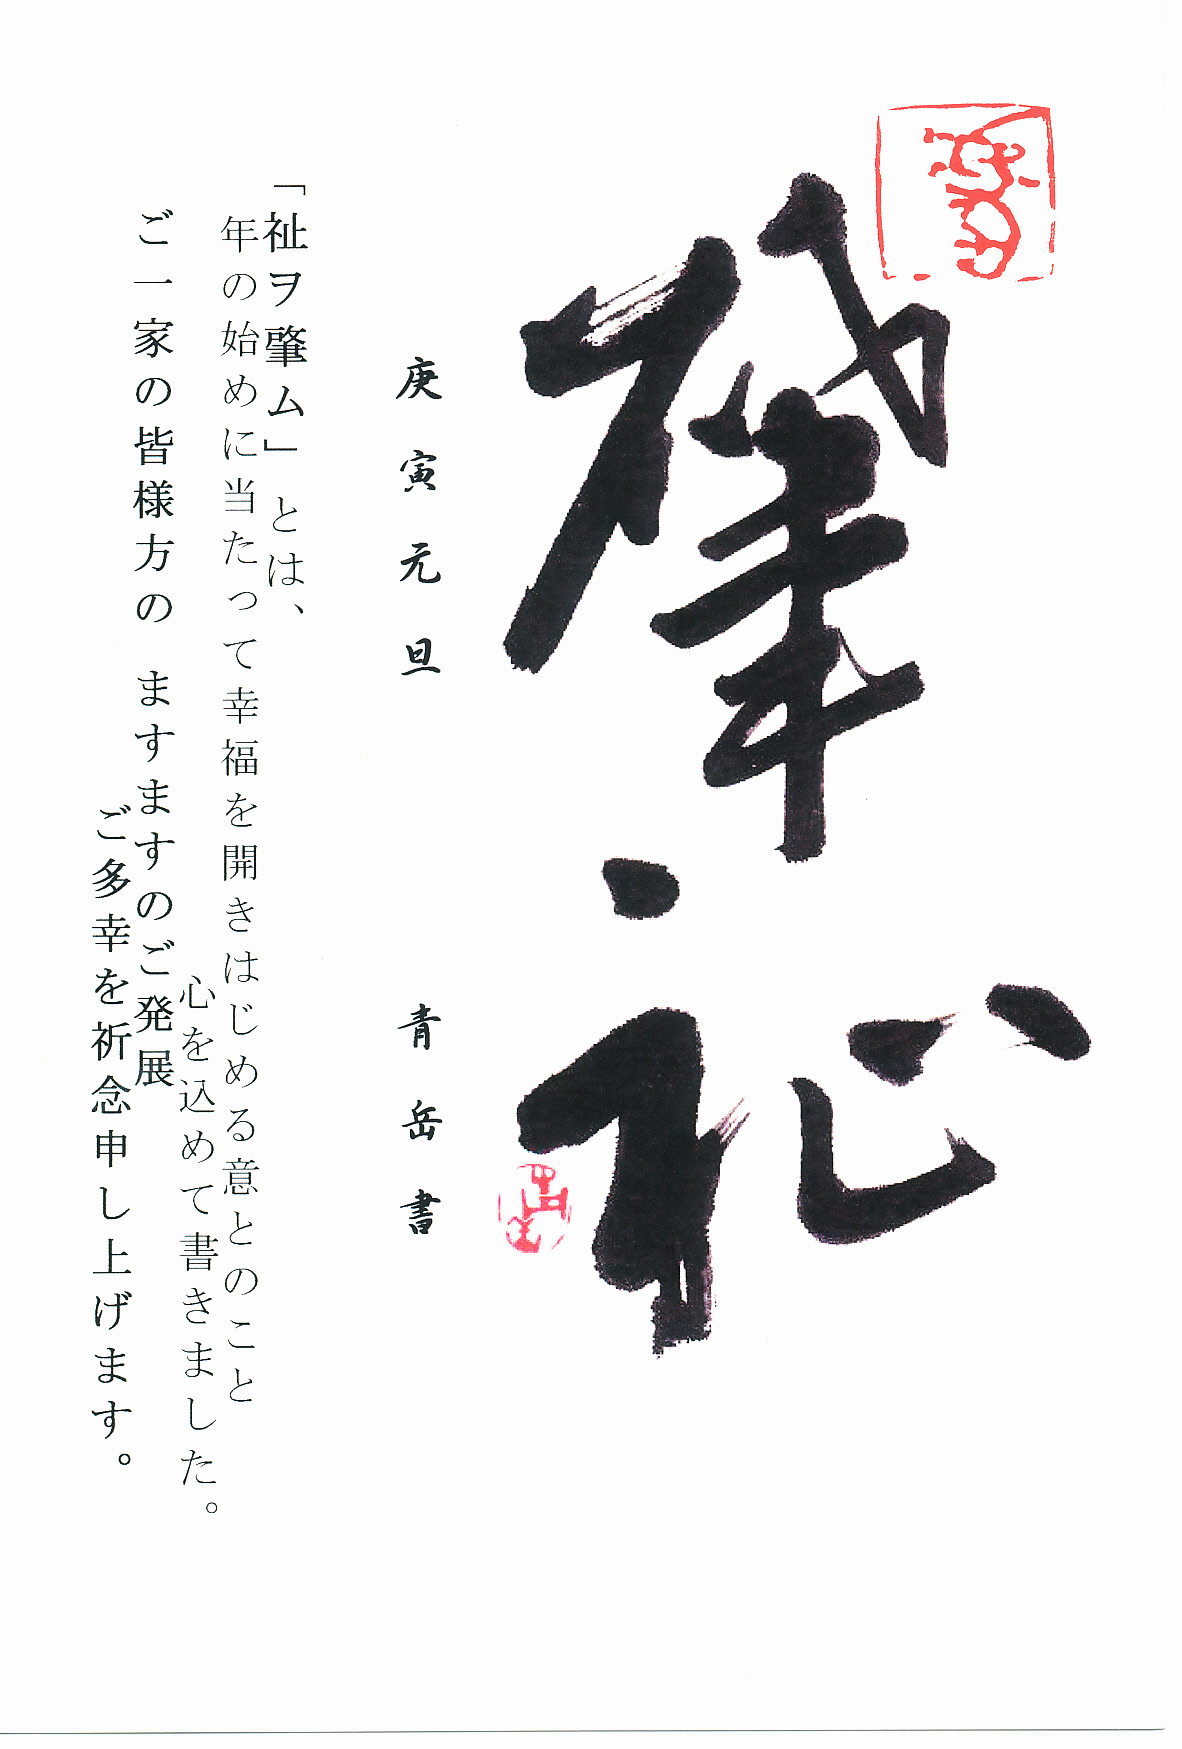 肇祉
庚寅元旦　青岳書
「祉ヲ肇ム」とは、
年の始めに当たって幸福を開きはじめる意とのこと
心を込めて書きました。
ご一家の皆様方の ますますのご発展
ご多幸を祈念申し上げます。